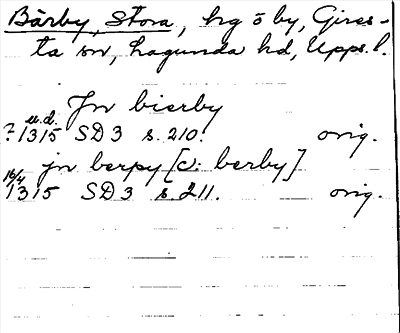 Bärby, Stora, hg o by, Gires-
ta sn, Lagunda hd, Upps. l.
Jn bierby
u.d.
? 1315 SD 3 s. 210. orig.
jn berpy [ɔ: berby]
16/4
1315 SD 3 s. 211. orig.